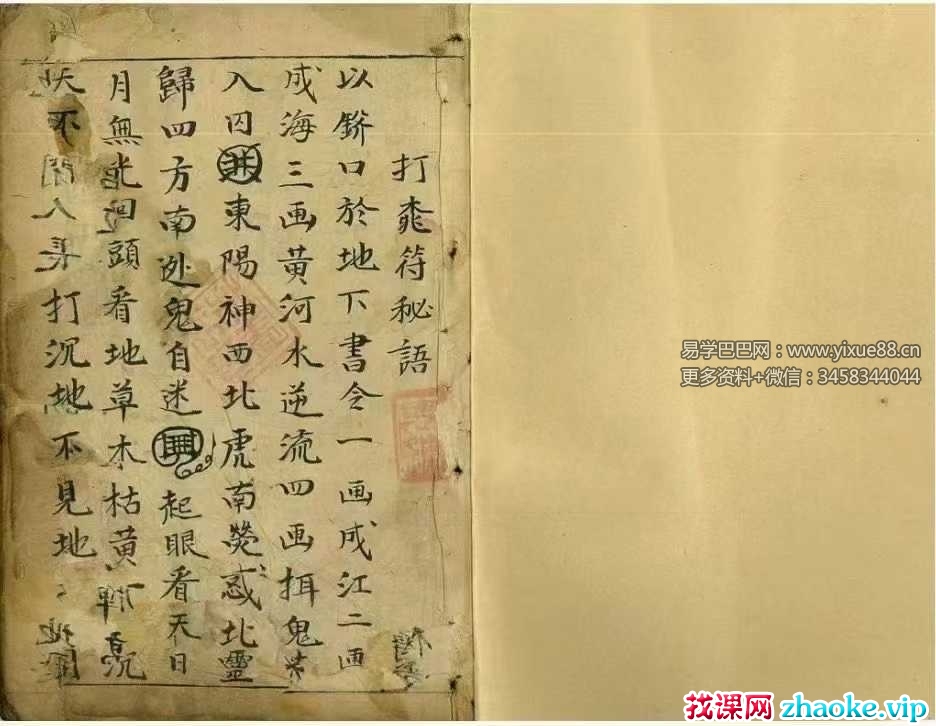 打符秘語
以口於地下書令一画成江二画
成海三画黄河水逆流四画鬼
入囚井東陽神西北虎南熒惑北靈
歸四方南鬼自迷起眼看天日
月無光回頭看地草木枯黄
不人打沉地不見地
易学巴巴网：www.yixue88.cn
更多资料+微信：3458344044
找课网 zhaoke.vip